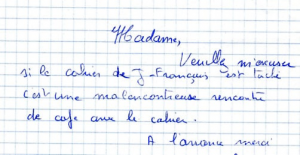 Madame,
Veuillez m'excuser
si le cahier de J-François est taché
c'est une malencontreuse rencontre
de café avec le cahier.
A l'avance merci